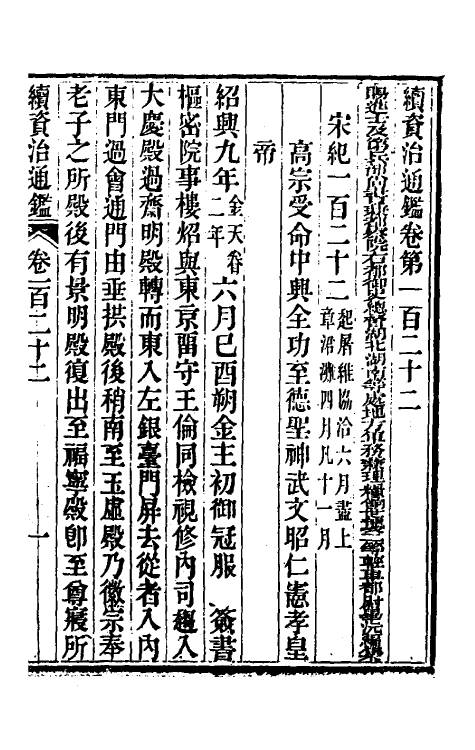 續資治通鑑卷第一百二十二
賜進士及第兵部尚書兼都察院右都御史總督湖北湖南等處地方軍務兼理糧餉世襲二等輕車都尉畢沅編集
宋紀一百二十二起屠維協洽六月盡上章涒灘四月凡十一月
高宗受命中興全功至德聖神武文昭仁憲孝皇
帝
紹興九年金天眷二年六月己酉朔金主初御冠服 簽書
樞密院事樓炤與東京留守王倫同檢視修內司趨入
大慶殿過齋明殿轉而東入左銀臺門屏去從者入內
東門過會通門由垂拱殿後稍南至玉虛殿乃徽宗奉
老子之所殿後有景明殿復出至福寧殿卽至尊寢所
續資治通鑑 卷一百二十二 一